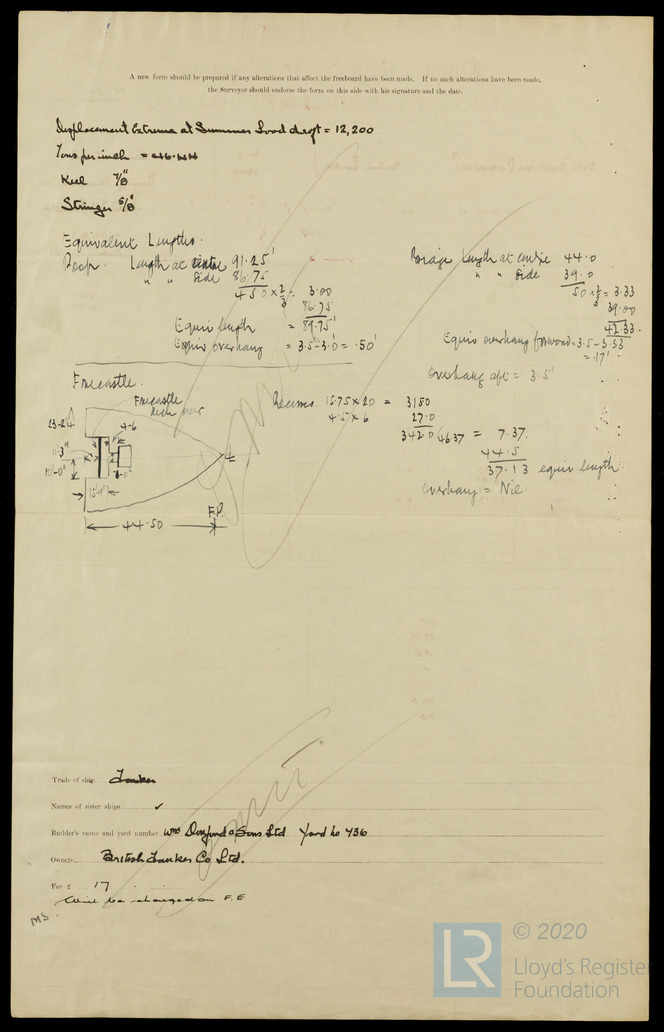 A new form should be prepared if any alterations that affect the freeboard have been made. If no such alterations have been made,
the Surveyor should endorse the form on this side with his signature and the date.
Displacement Extreme at Summer Load draft = 12,200
Tons per inch =
Keel 7/8"
Stringer 5/8"
Equivalent Lengths.
Poop. Length at centre 91.25'
" " Side 86.75
4.50 × 2/3 = 3.00
86.75
Equiv length = 89.75'
Equiv overhang = 3.5' - 3.0' = .50'
Bridge length at centre 44.0
" " Side 39.0
5.0 × 2/3 = 3.33
39.00
42.33
Equiv overhang forward = 3.5 - 3.33
= .17'
Overhang aft = 3.5'
Forecastle.
Forecastle
deck over
23-2
4-6
11'3"
10'-0"
15'9"
44.50
F.P.
Recess. 15.75 × 20 = 3150
4.5 × 6 27.0
342.0/46.37 = 7.37
44.5
37.13 equiv length
Overhang = Nil
Trade of ship Tanker
Names of sister ships ✓
Builder's name and yard number Wm Doxford & Sons Ltd Yard No 756
Owners British Tanker Co Ltd.
Fee £ 17
Will be charged on F.E
omit
© 2020
LR
Lloyd's Register
Foundation